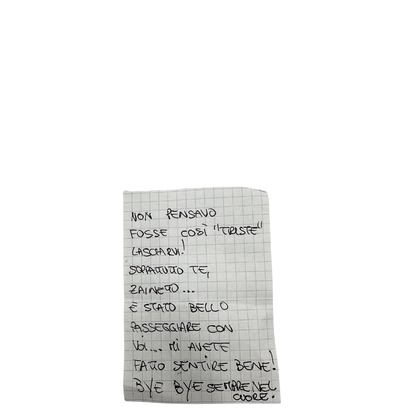 NON PENSAVO
FOSSE COSÌ "TRISTE"
LASCIARVI!
SOPRATTUTTO TE,
ZAINETTO...
È STATO BELLO
PASSEGGIARE CON
VOI.... MI AVETE
FATTO SENTIRE BENE!
BYE BYE SEMPRE NEL
CUORE.